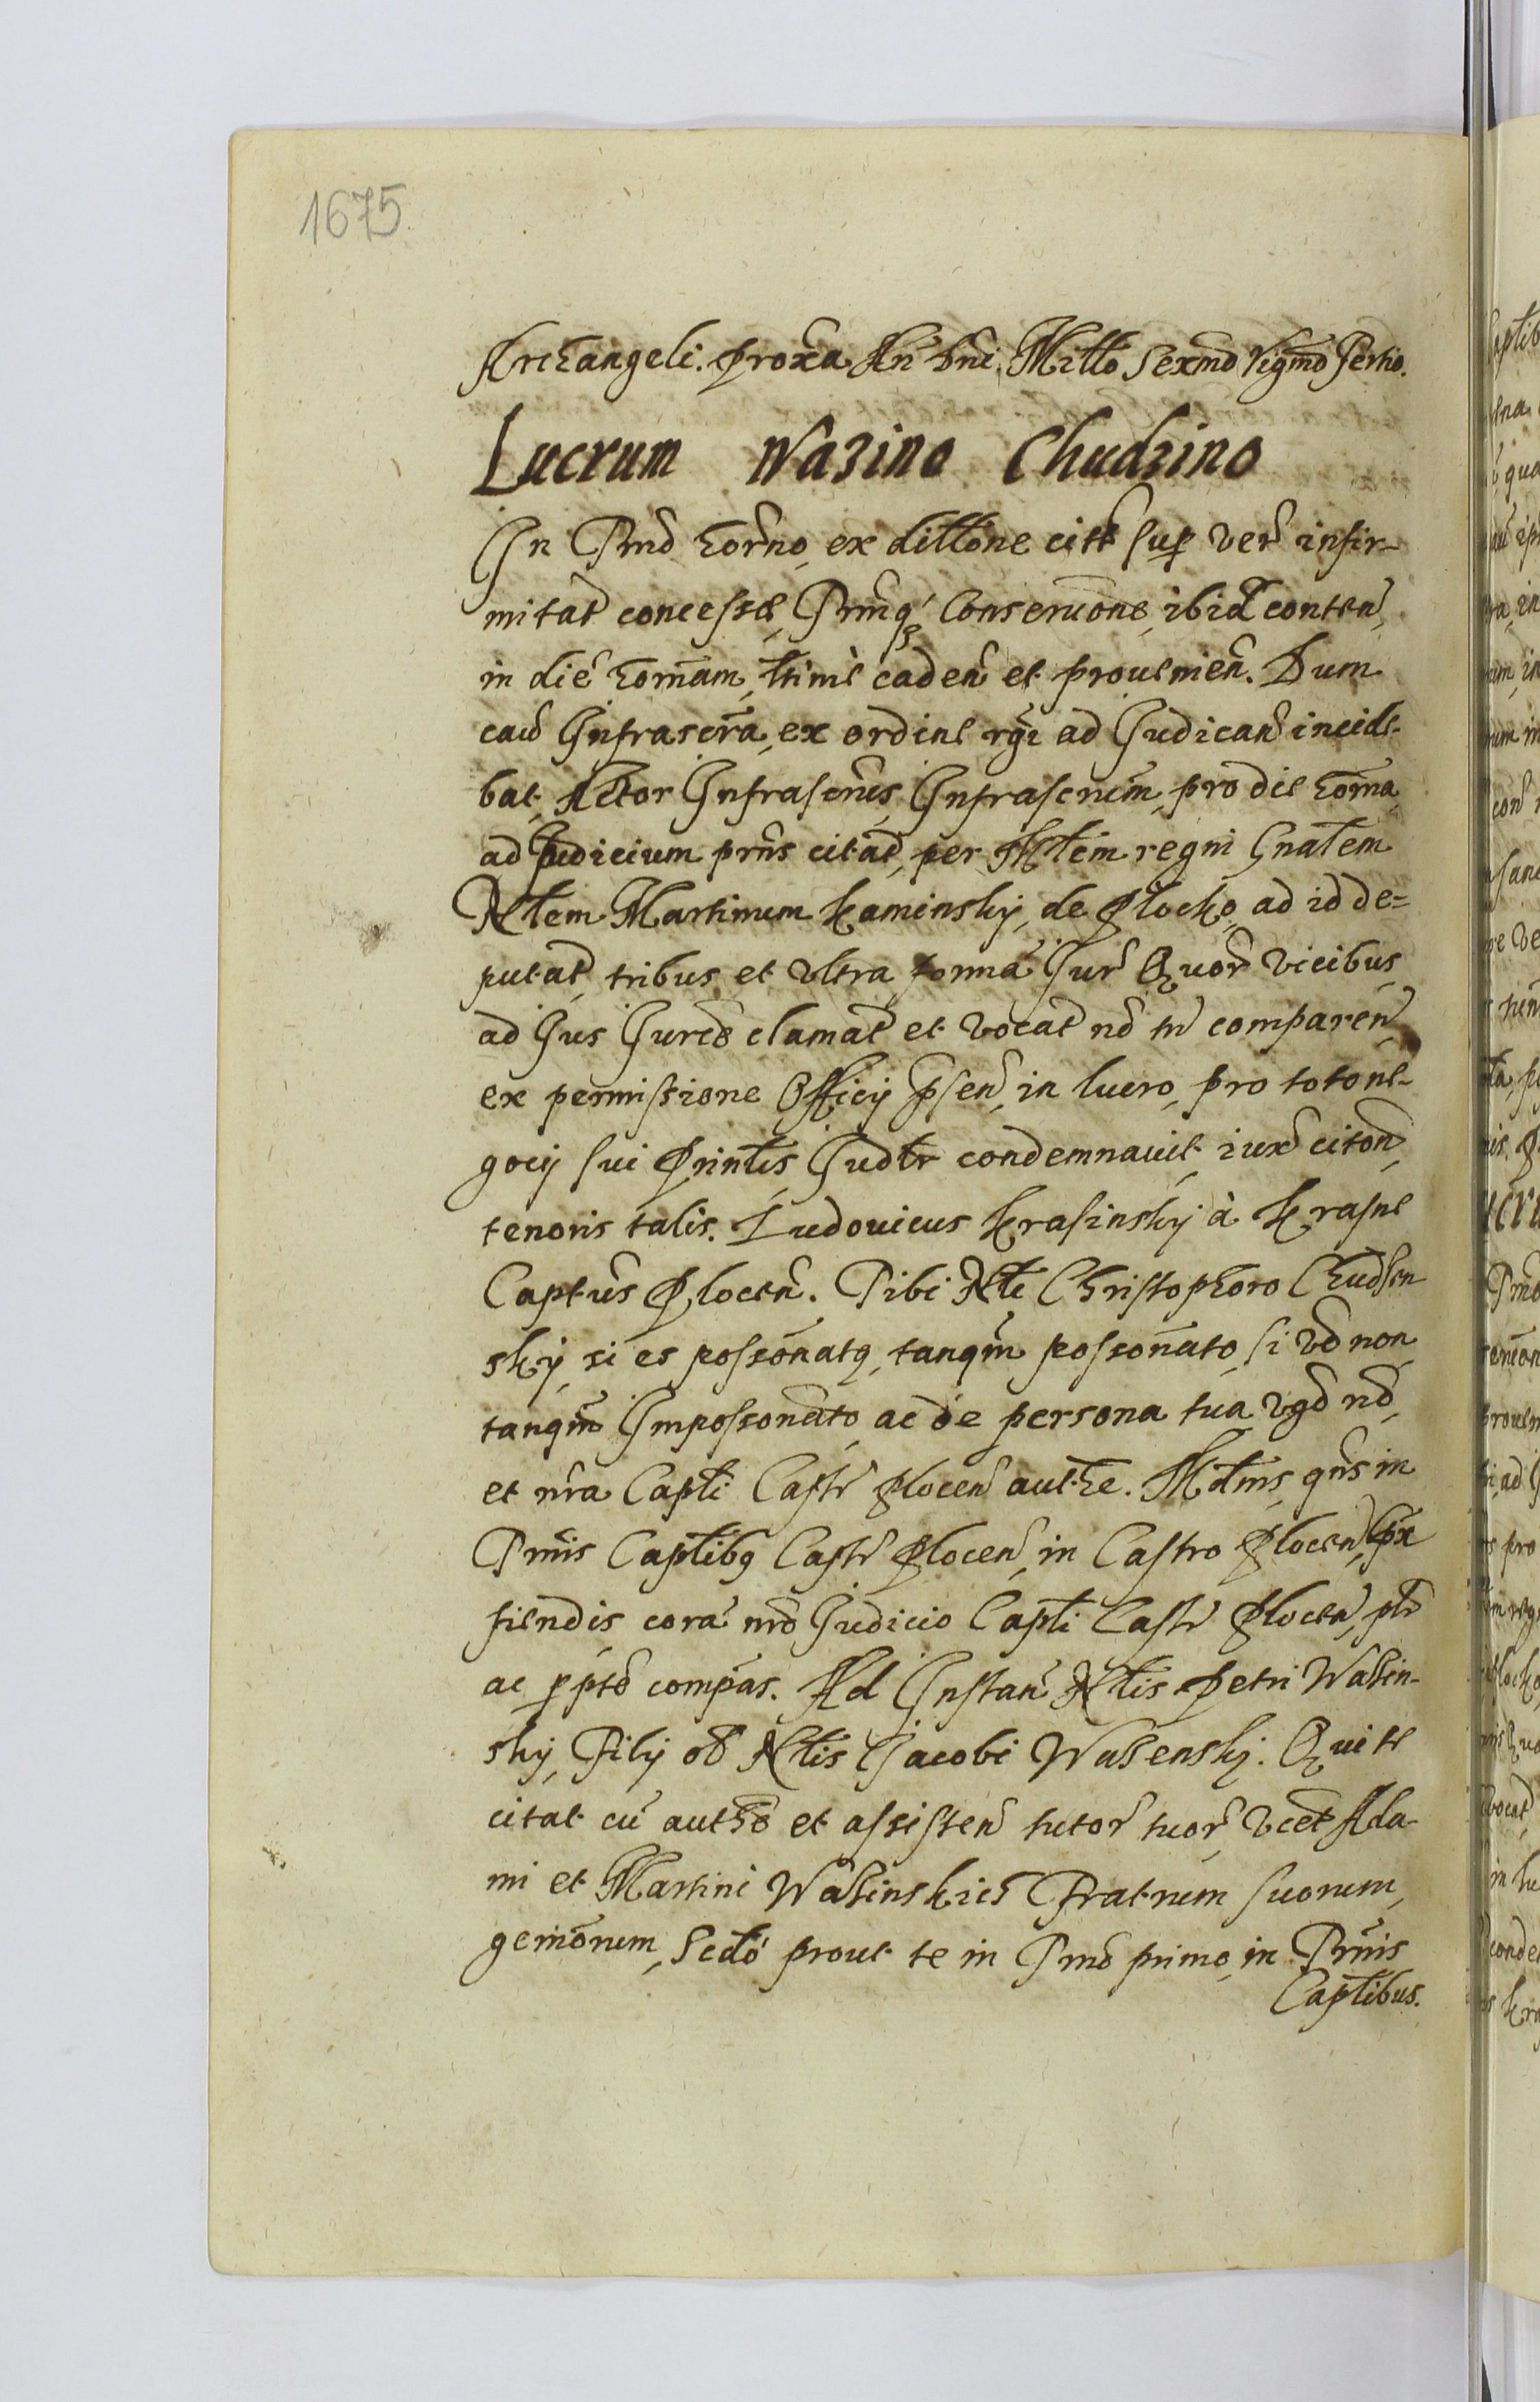 1675.
Archangeli. proxa An Dni. Millo Sexmo Vigmo Tertio.
Lucrum Wazino Chudzino
In Trmo horno, ex dillone citt sup ver infir-
mitat concessæ, Trmiq Conservone, ibid conten,
in die hornam, ltime caden et provenien. Dum
caus Infrascra, ex ordine rgi ad Judican incide-
bat, Actor Infrascrus, Infrascrum, pro die horna
ad Judicium prns citat, per Mtem regni Gnalem
Nlem Martinum Kaminsky, de Plocko, ad id de=
putat, tribus et ultra forma Jur Quor vicibus,
ad Jus Jurco clamat et vocat no tn comparen,
ex permissione Officij psen, in lucro, pro toto ne-
gocij sui Printis, Judtr condemnavit iux citon,
tenoris talis. Ludovicus Krasinsky à Krasne
Captus Plocen. Tibi Nli Christophoro Chudsen
sky, si es possonatq, tanqm possonato, si vo non
tanqm Impossonato, ac de persona tua vgo no,
et nra Capli Castr Plocen authe. Mdmus, qns in
Trmis Caplibq Castr Plocen, in Castro Plocen, px
fiendis cora nro Judicio Capli Castr Plocen, plr
ac pptó compas. Ad Instan Nlis Petri Wasin-
sky, Filij ol Nlis Jacobi Wasensky. Qui te
citat cu autho et assisten tutor tuor, vcet Ada-
mi et Martini Wasinskich Fratrum suorum,
gemonum, Sedó prout te in Trmo primo, in Trmis
Captibus.